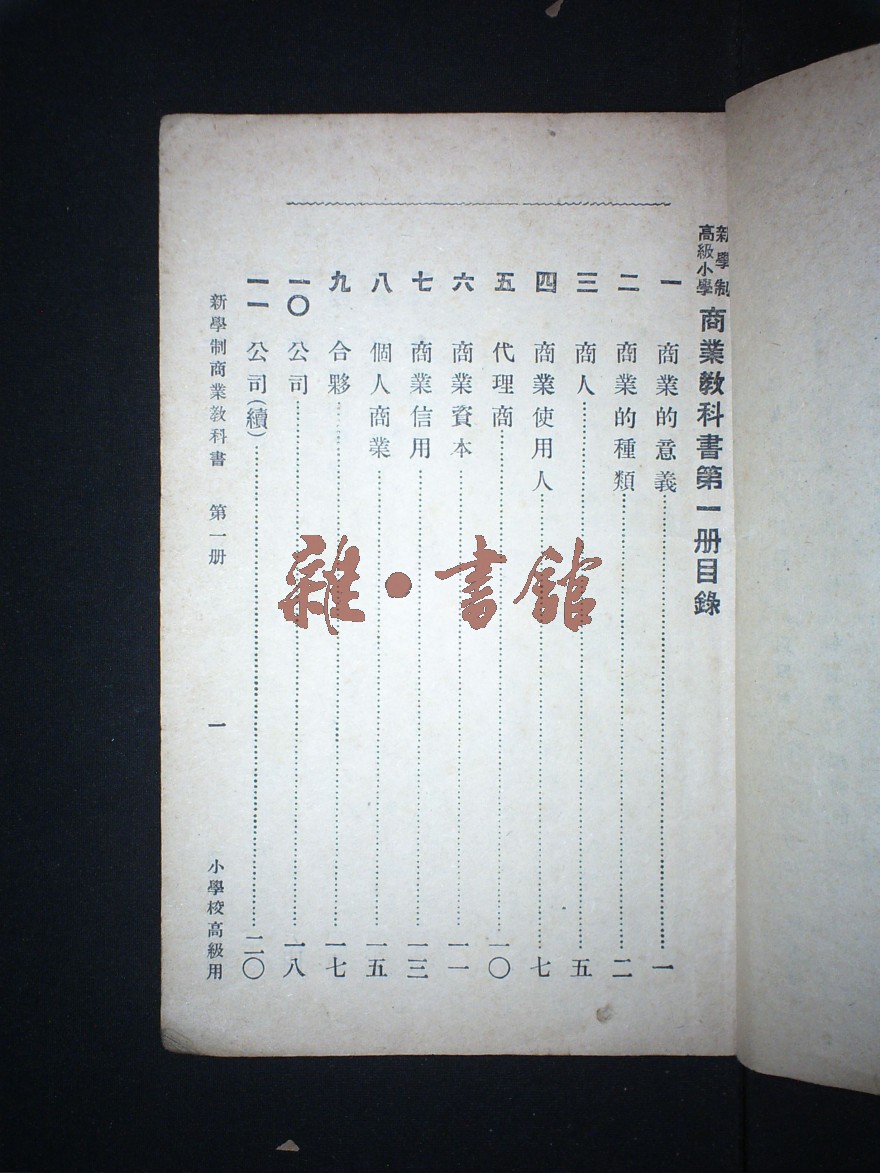 新學制高級小學商業教科書第一册目錄
一 商業的意義……一
二 商業的種類……二
三 商人……五
四 商業使用人……七
五 代理商……一〇
六 商業資本……一一
七 商業信用……一三
八 個人商業……一五
九 合夥……一七
一〇 公司……一八
一一 公司(續)……二〇
新學制商業教科書 第一册 一 小學校高級用
雜·書館